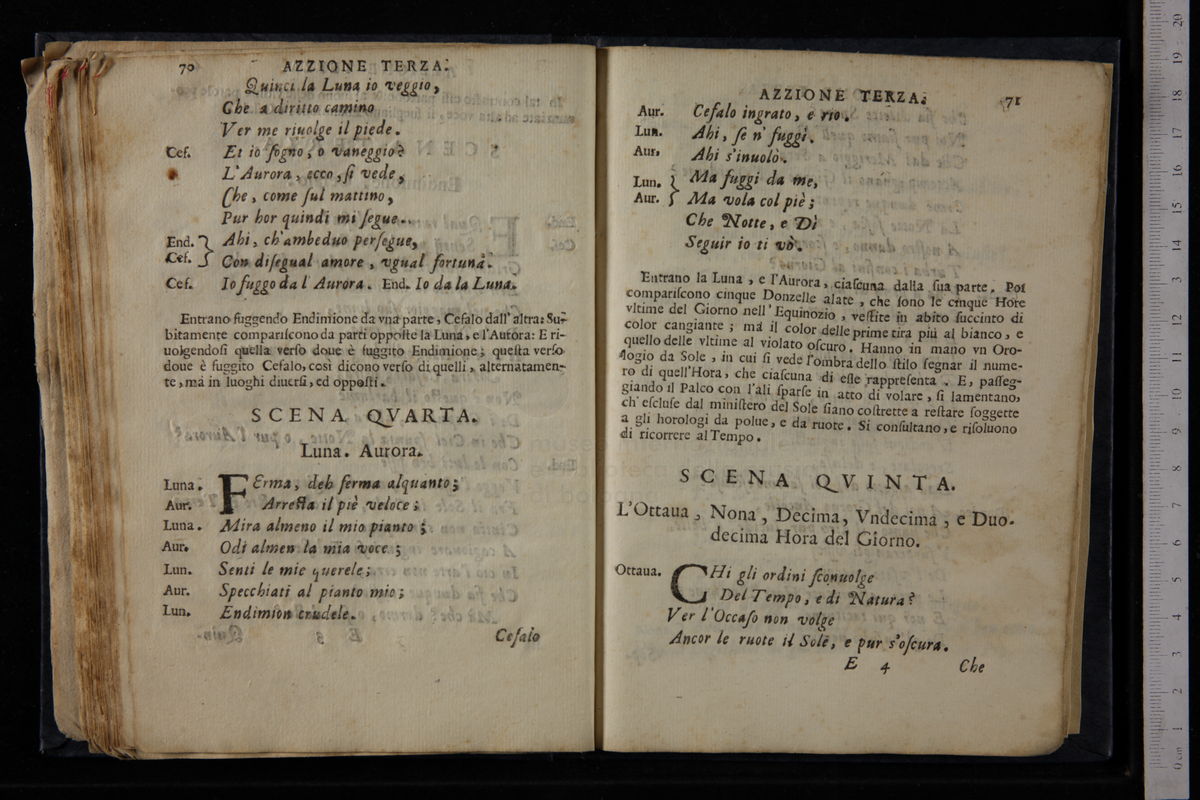 70 AZZIONE TERZA.
Quinci la Luna io veggio,
Che a diritto camino
Ver me riuolge il piede.
Cef. Et io ſogno, o vaneggio?
L'Aurora, ecco, ſi vede,
Che, come ſul mattino,
Pur hor quindi mi ſegue.
End. } Ahi, ch'ambeduo perſegue,
Cef. } Con diſegual amore, vgual fortuna.
Cef. Io fuggo da l'Aurora. End. Io da la Luna.
Entrano fuggendo Endimione da vna parte, Cefalo dall'altra: Su-
bitamente compariſcono da parti oppoſte la Luna, e l'Aurora: E ri-
uolgendoſi quella verſo doue è fuggito Endimione; queſta verſo
doue è fuggito Cefalo, così dicono verſo di quelli, alternatamen-
te, mà in luoghi diuerſi, ed oppoſti.
SCENA QVARTA.
Luna. Aurora.
Luna. FErma, deh ferma alquanto;
Aur. Arreſta il piè veloce;
Luna. Mira almeno il mio pianto;
Aur. Odi almen la mia voce;
Lun. Senti le mie querele;
Aur. Specchiati al pianto mio;
Lun. Endimion crudele.
E 3 Cefalo
AZZIONE TERZA. 71
Aur. Cefalo ingrato, e rio.
Lun. Ahi, ſe n' fuggì.
Aur. Ahi s'inuolò.
Lun. } Ma fuggi da me,
Aur. } Ma vola col piè;
Che Notte, e Dì
Seguir io ti vò.
Entrano la Luna, e l'Aurora, ciaſcuna dalla ſua parte. Poi
compariſcono cinque Donzelle alate, che ſono le cinque Hore
vltime del Giorno nell'Equinozio, veſtite in abito ſuccinto di
color cangiante; mà il color delle prime tira più al bianco, e
quello delle vltime al violato oſcuro. Hanno in mano vn Oro-
logio da Sole, in cui ſi vede l'ombra dello ſtilo ſegnar il nume-
ro di quell'Hora, che ciaſcuna di eſſe rappreſenta. E, paſſeg-
giando il Palco con l'ali ſparſe in atto di volare, ſi lamentano,
ch'eſcluſe dal miniſtero del Sole ſiano coſtrette a reſtare ſoggette
a gli horologi da polue, e da ruote. Si conſultano, e riſoluono
di ricorrere al Tempo.
SCENA QVINTA.
L'Ottaua, Nona, Decima, Vndecima, e Duo-
decima Hora del Giorno.
Ottaua. CHi gli ordini ſconuolge
Del Tempo, e di Natura?
Ver l'Occaſo non volge
Ancor le ruote il Sole, e pur s'oſcura.
E 4 Che